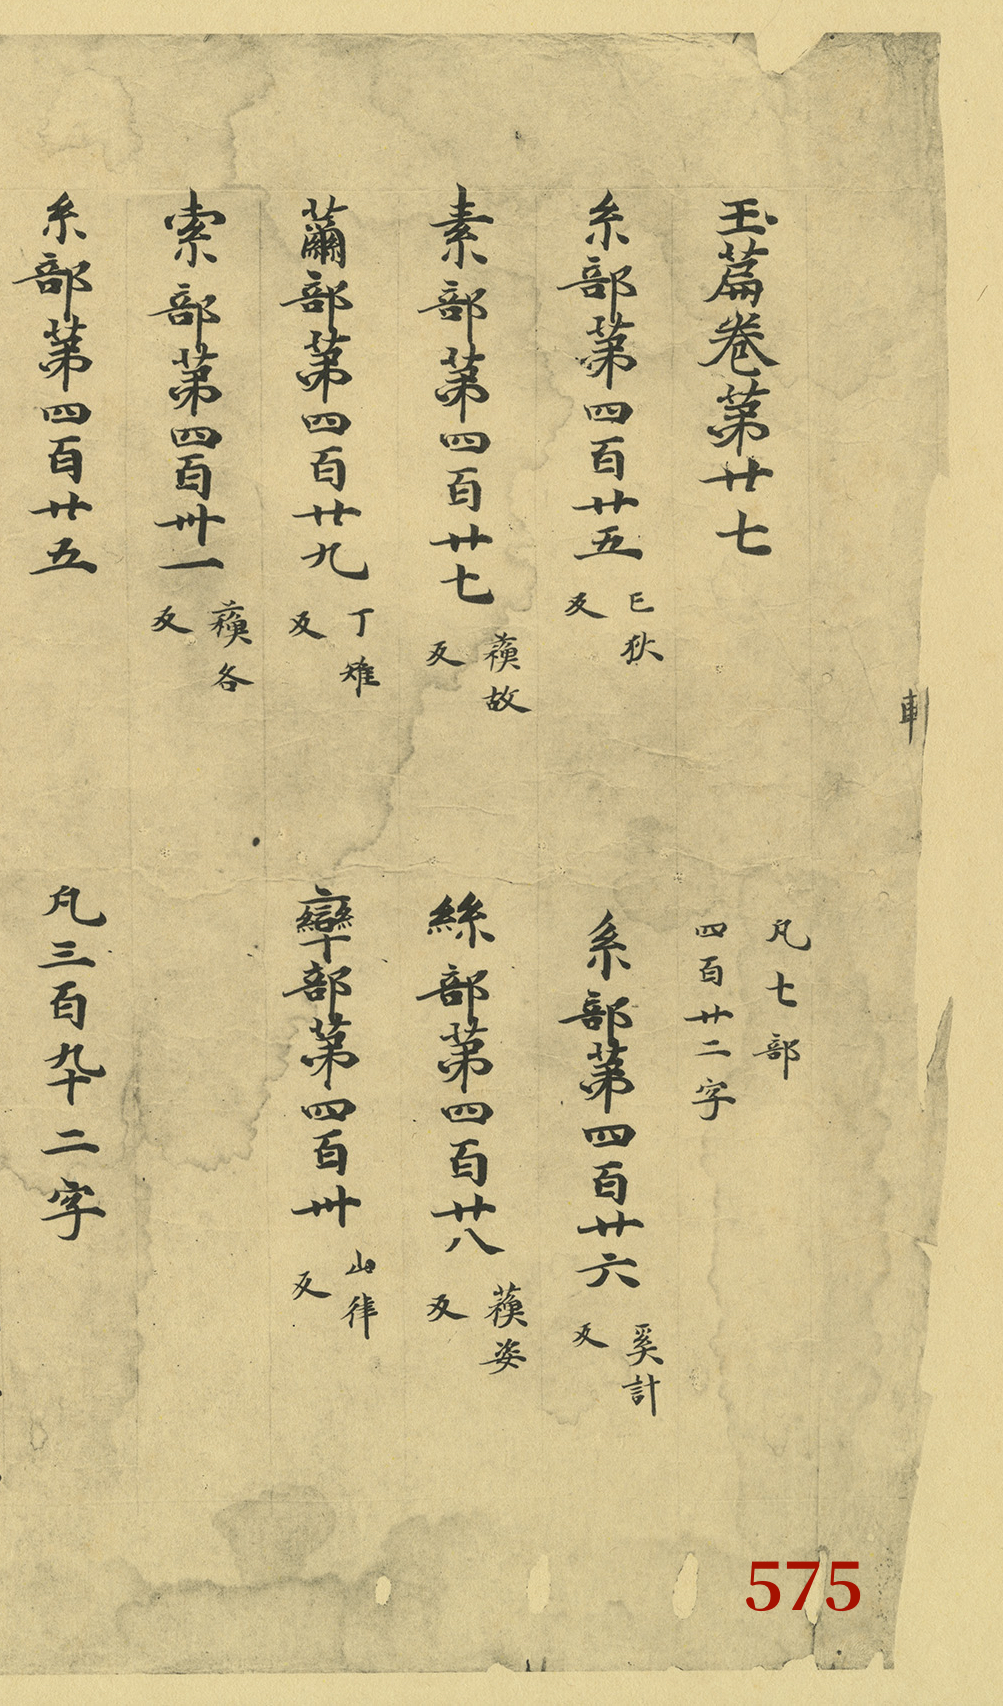 玉篇卷第廿七 凡七部 四百廿二字
糸部第四百廿五 亡狄反 系部第四百廿六 奚計反
素部第四百廿七 蘓故反 絲部第四百廿八 蘓姿反
黹部第四百廿九 丁雉反 部第四百卅 山律反
索部第四百卅一 蘓各反
糸部第四百廿五 凡三百九十二字
車
575